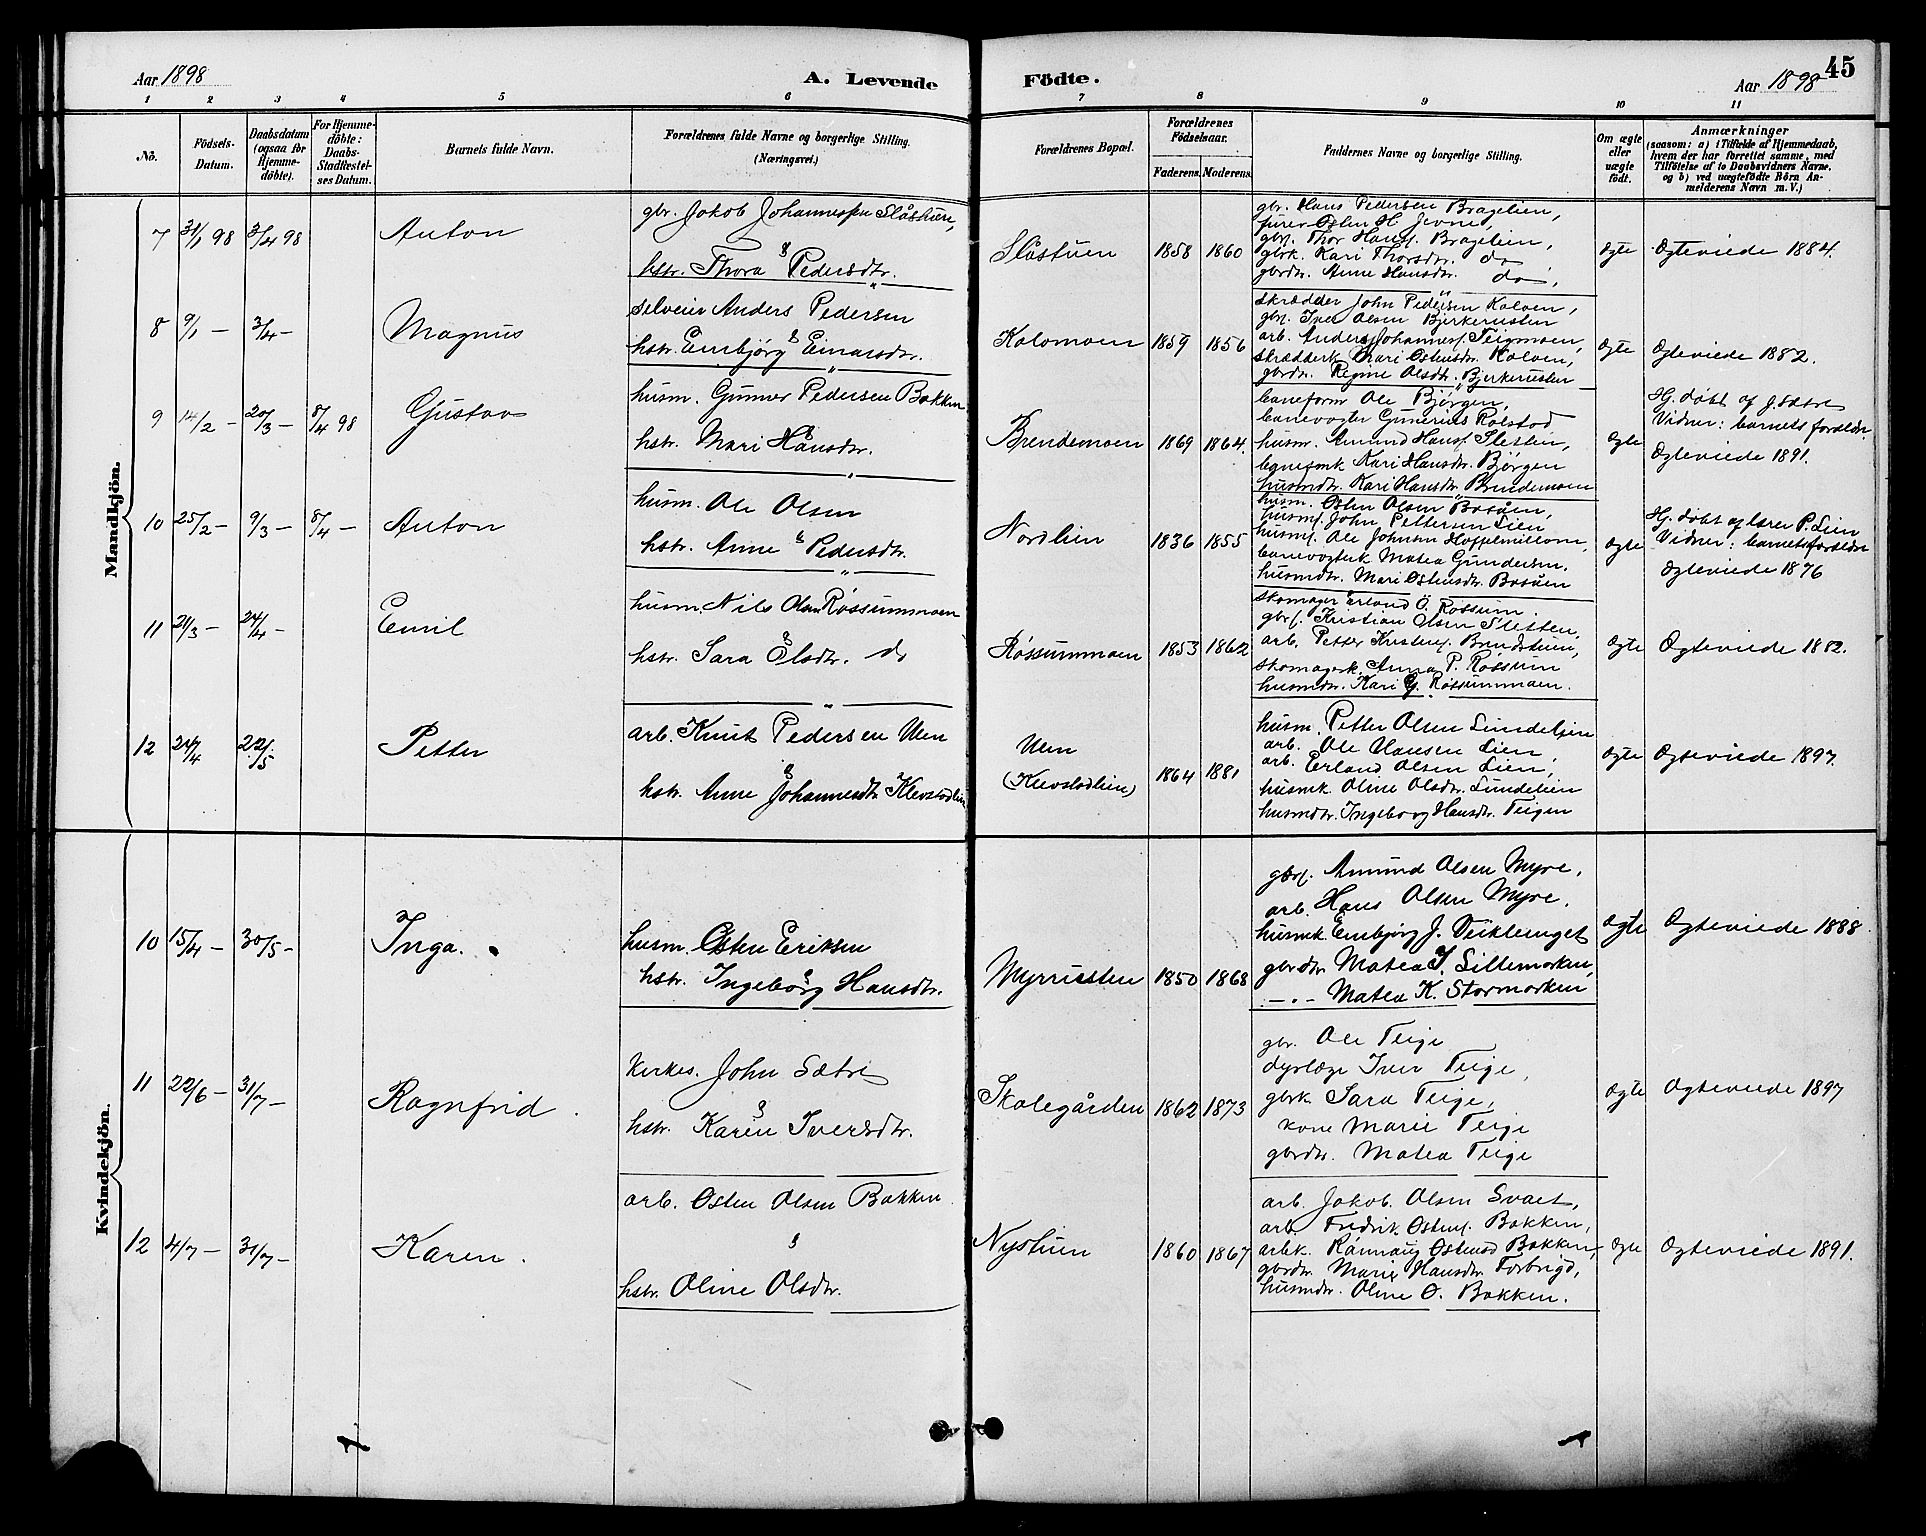 Aar 1898
A. Levende
Födte.
Aar 1898
45
1 2 3 4 5 6 7 8 9 10 11
No.
Födsels-
Datum.
Daabsdatum
(ogsaa for
Hjemme-
döbte).
For Hjemme-
döbte:
Daabs-
Stadfæstel-
ses Datum.
Barnets fulde Navn.
Forældrenes fulde Navne og borgerlige Stilling.
(Næringsvei.)
Forældrenes Bopæl.
Forældrenes
Födselsaar.
Faderens. Moderens.
Faddernes Navne og borgerlige Stilling.
Om ægte
eller
uægte
födt.
Anmærkninger
(saasom: a) i Tilfælde af Hjemmedaab,
hvem der har forrettet samme, med
Tilföielse af to Daabsvidners Navne,
og b) ved uægtefödte Börn An-
melderens Navn m. V.)
Mandkjön.
7 31/1 98 3/4 98 Anton
gbr. Jokob Johannessen Slåstuen,
&
hstr. Thora Pedersdtr.
Slåstuen 1858 1860
gbr. Hans Pedersen Bragelien,
furer Østen H. Jevne,
gbrs. Thor Hanss. Bragelien,
gbrk. Kari Thorsdtr. do
gbrdtr. Anne Hansdtr. do.
Ægte Ægteviede 1884.
8 9/1 - 3/4 - Magnus
selveier Anders Pedersen
&
hstr. Embjørg Einarsdtr.
Kolomoen 1859 1856
skrædder John Pedersen Kolven,
gbs. Iver Olsen Bjerkerusten
arb. Anders Johanness. Teigmoen,
skrædderk. Mari Østensdtr. Kolven,
gbrdtr. Regine Olsdtr. Bjerkerusten
Ægte Ægteviede 1882.
9 14/2 - 20/3 - 8/4 98 Gustav
husm. Gunner Pedersen Bakken
&
hstr. Mari Hansdtr.
Brendemoen 1869 1864.
baneform Ole Bjørgen,
banevogter Gunerius Rolstad
husm. Amund Hanss. Sletten,
banefmk Kari Hansdtr. Bjørgen
husmdtr. Kari Hansdtr. Brendemoen
Ægte
Hj. døbt af J. Sætre
Vidner: barnets foreldr.
Ægteviede 1891.
10 25/2 - 9/3 - 8/4 - Anton
husm. Ole Olsen
&
hstr. Anne Pedersdtr.
Nordlien 1836 1855
husm. Østen Olsen Bosøen,
husms. John Pettersen Lien
husms. Ole Johnsen
banevogterk Matea Gundersen,
husmdtr. Mari Østensdtr. Bosøen
Ægte
Hj. døbt af lærer P. Lien
Vidner: barnets foreldr
Ægteviede 1876
11 21/3 - 24/4 - Emil
husm. Nils Olsen Røssummoen
&
hstr. Sara Olsdtr. do
Røssummoen 1853 1862
skomager Erland Ö. Røssum.
gbrs. Kristian Olsen Sletten,
arb. Petter Kristens. Brendstuen,
skomagerk. Anna P. Røssum
husmdtr. Kari G. Røssummoen.
Ægte Ægteviede 1882.
12 24/4 22/5 Petter
arb. Knut Pedersen Uen
&
hstr. Anne Johannesdtr Klevstadlien
Uen
(Klevstadlien) 1864 1881
husm. Petter Olsen Lundelien
arb. Ole Hansen Lien
arb. Erland Olsen Lien,
husmk. Oline Olsdtr. Lundelien
husmdtr. Ingeborg Hansdtr. Teigen
Ægte Ægteviede 1897.
Kvindekjön.
10 15/4 - 30/5 - Inga.
husm. Østen Eriksen
&
hstr. Ingeborg Hansdtr.
Myrrusten 1850 1868
gbrs. Amund Olsen Myre,
arb. Hans Olsen Myre,
husmk. Embjørg J. Veikleenget
gbrdtr. Matea J. Sillemorken,
- " - Matea K. Stormorken
Ægte Ægteviede 1888
11 22/6 31/7 - Ragnfrid.
Kirkes. John Sætre
&
hstr. Karen Iversdtr.
Skolegården 1862 1873
gbr. Ole Teige
dyrlæge Iver Teige,
gbrk. Sara Teige,
kone Marie Teige
gbrdtr. Matea Teige
Ægte Ægteviede 1897
12 4/7 - 31/7 - Karen.
arb. Østen Olsen Bakken
&
hstr. Oline Olsdtr.
Nystuen 1860 1867
arb. Jakob Olsen Svaet,
arb. Fredrik Østens. Bakken,
arbk. Rønnaug Østensd Bakken,
gbrdtr. Marie Hansdtr. Forbrigd,
husmdtr. Oline O. Bakken.
Ægte Ægteviede 1891.